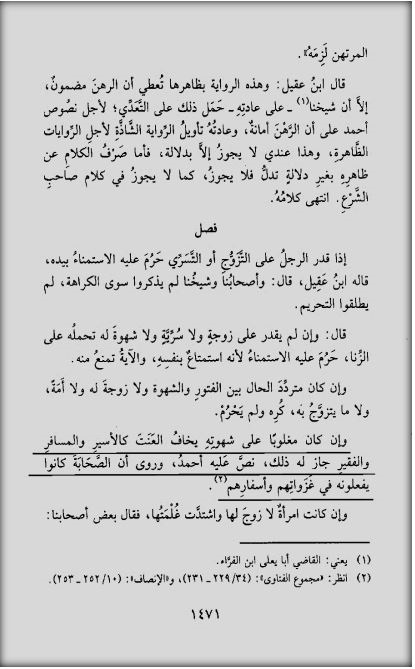 المرتهن لَزِمَهُ».
قال ابنُ عقيل: وهذه الرواية بظاهرها تُعطي أن الرهنَ مضمونٌ،
إلاَّ أن شيخنا(١) ـ على عادتِهِ ـ حَمَل ذلك على التَّعَدِّي؛ لأجل نصُوص
أحمد على أن الرَّهْنَ أمانةٌ، وعادتُهُ تأويلُ الرِّواية الشاذَّةِ لأجلِ الرِّوايات
الظَّاهرةِ، وهذا عندي لا يجوزُ إلاَّ بدلالة، فأما صَرْفُ الكلامِ عن
ظاهرِهِ بغيرِ دلالةٍ تدلُّ فلا يجوزُ، كما لا يجوزُ في كلام صاحبِ
الشَّرْعِ. انتهى كلامُهُ.
فصل
إذا قدر الرجلُ على التَّزَوُّجِ أو التَّسَرِّي حَرُمَ عليه الاستمناءُ بيده،
قاله ابنُ عَقِيل، قال: وأصحابُنا وشيخُنا لم يذكروا سوى الكراهة، لم
يطلقوا التحريم.
قال: وإن لم يقدر على زوجةٍ ولا سُرِّيَّةٍ ولا شهوةَ له تحملُه على
الزِّنا، حَرُمَ عليه الاستمناءُ لأنه استمتاعٌ بنفسِهِ، والآيةُ تمنعُ منه.
وإن كان متردِّدَ الحال بين الفتورِ والشهوة ولا زوجةَ له ولا أَمَةً،
ولا ما يتزوَّجُ به، كُرِه ولم يَحْرُمْ.
وإن كان مغلوبًا على شهوتِهِ يخافُ العَنَتَ كالأسيرِ والمسافرِ
والفقيرِ جاز له ذلك، نصَّ عَليه أحمدُ، وروى أن الصَّحَابَةَ كانوا
يفعلونه في غَزَواتِهم وأسفارِهم(٢).
وإن كانت امرأةً لا زوجَ لها واشتدَّت غُلْمَتُها، فقال بعض أصحابنا:
(١) يعني: القاضي أبا يعلى ابن الفرَّاء.
(٢) انظر: «مجموع الفتاوى»: (٣٤/ ٢٢٩ ـ ٢٣١)، و«الإنصاف»: (١٠/ ٢٥٢ ـ ٢٥٣).
١٤٧١